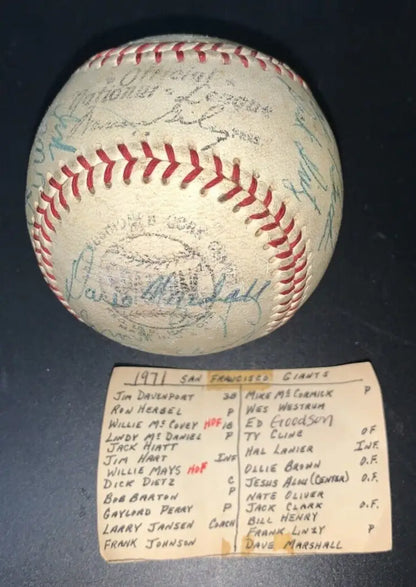 "Official
National League
Warren Giles
PRES
CUSHIONED CORK
Dave Marshall
1971 SAN FRANCISCO GIANTS
JIM DAVENPORT 3B
RON HERBEL P
WILLIE MCCOVEY HOF 1B
LINDY MCDANIEL P
JACK HIATT
JIM HART INF
WILLIE MAYS HOF
DICK DIETZ C
BOB BARTON
GAYLORD PERRY P
LARRY JANSEN COACH
FRANK JOHNSON
MIKE MCCORMICK P
WES WESTRUM
ED Goodson
TY CLINE O.F
HAL LANIER INF.
OLLIE BROWN O.F.
JESUS ALOU (CENTER) O.F.
NATE OLIVER
JACK CLARK O.F.
BILL HENRY
FRANK LINZY P
DAVE MARSHALL